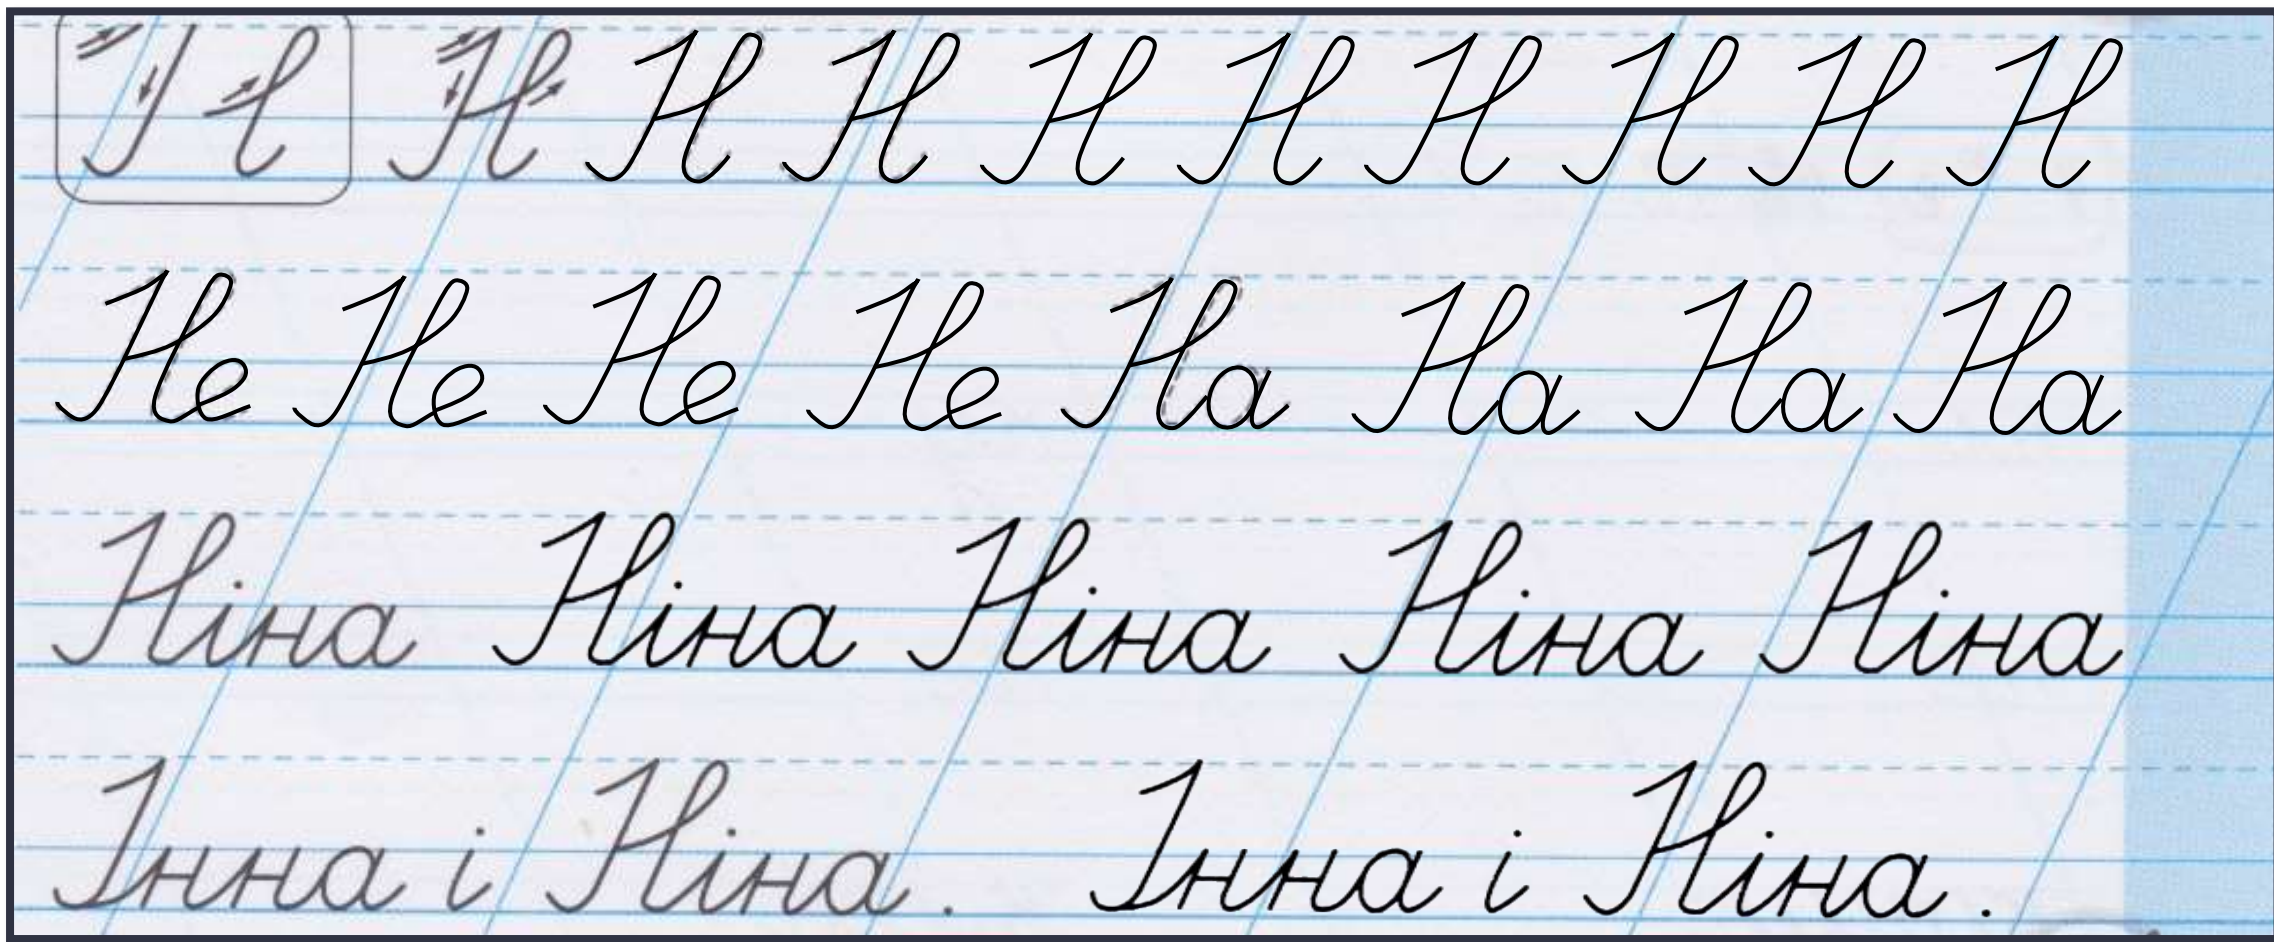 Н Н Н Н Н Н Н Н Н
Не Не Не Не На На На На
Ніна Ніна Ніна Ніна Ніна
Інна і Ніна. Інна і Ніна.